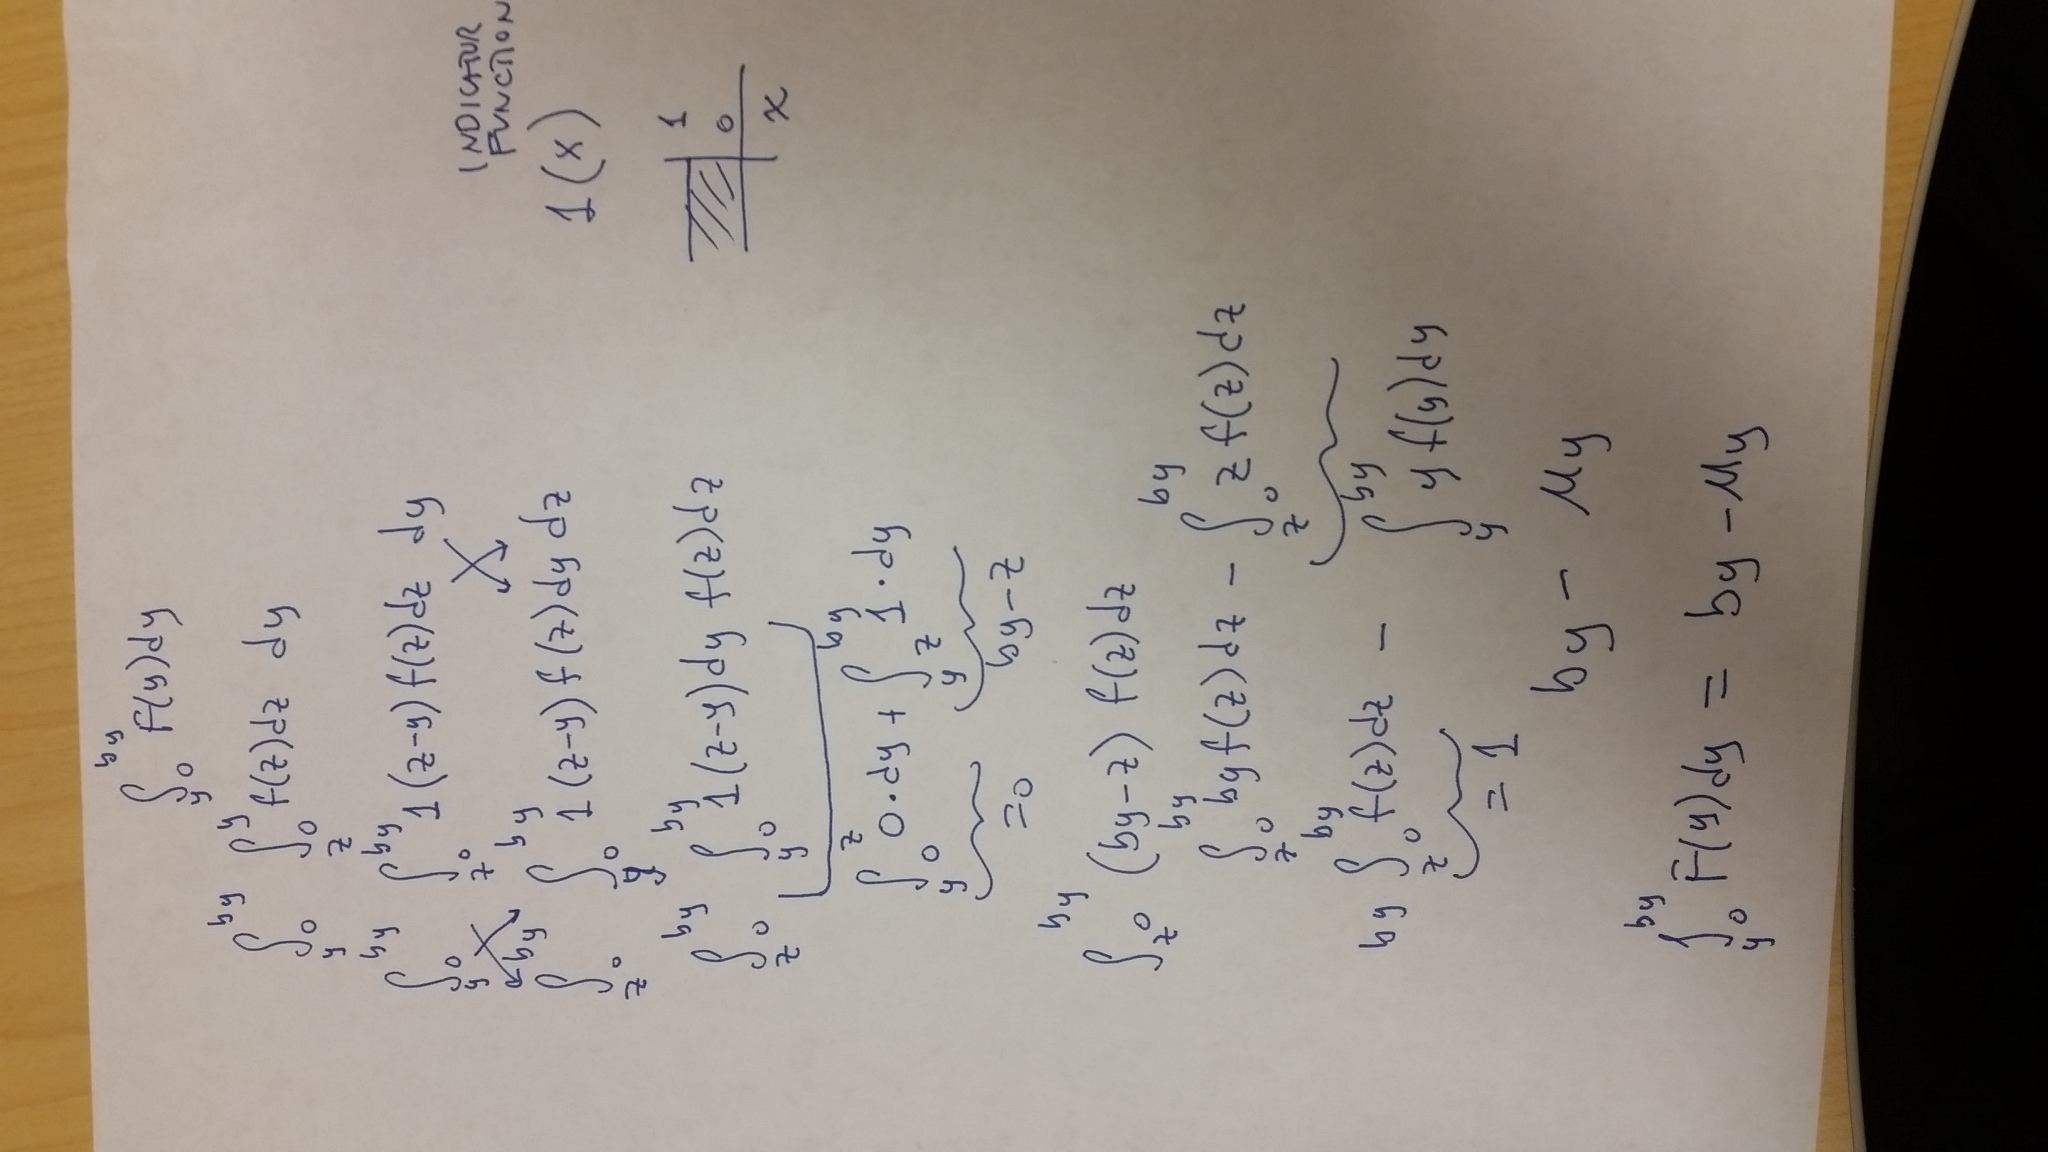 ∫_y0^by F(y)dy
∫_y0^by ∫_z0^y f(z)dz dy
∫_y0^by ∫_z0^by 1(z-y) f(z)dz dy
∫_z0^by ∫_y0^by 1(z-y) f(z)dy dz
∫_z0^by ∫_y0^by 1(z-y)dy f(z)dz
∫_y0^z 0·dy + ∫_yz^by 1·dy
=0 by-z
∫_z0^by (by-z) f(z)dz
∫_z0^by by f(z)dz - ∫_z0^by z f(z)dz
by ∫_z0^by f(z)dz - ∫_y^by y f(y)dy
= 1
by - μy
∫_y0^by F(y)dy = by - μy
INDICATOR
FUNCTION
1(x)
1
0
x